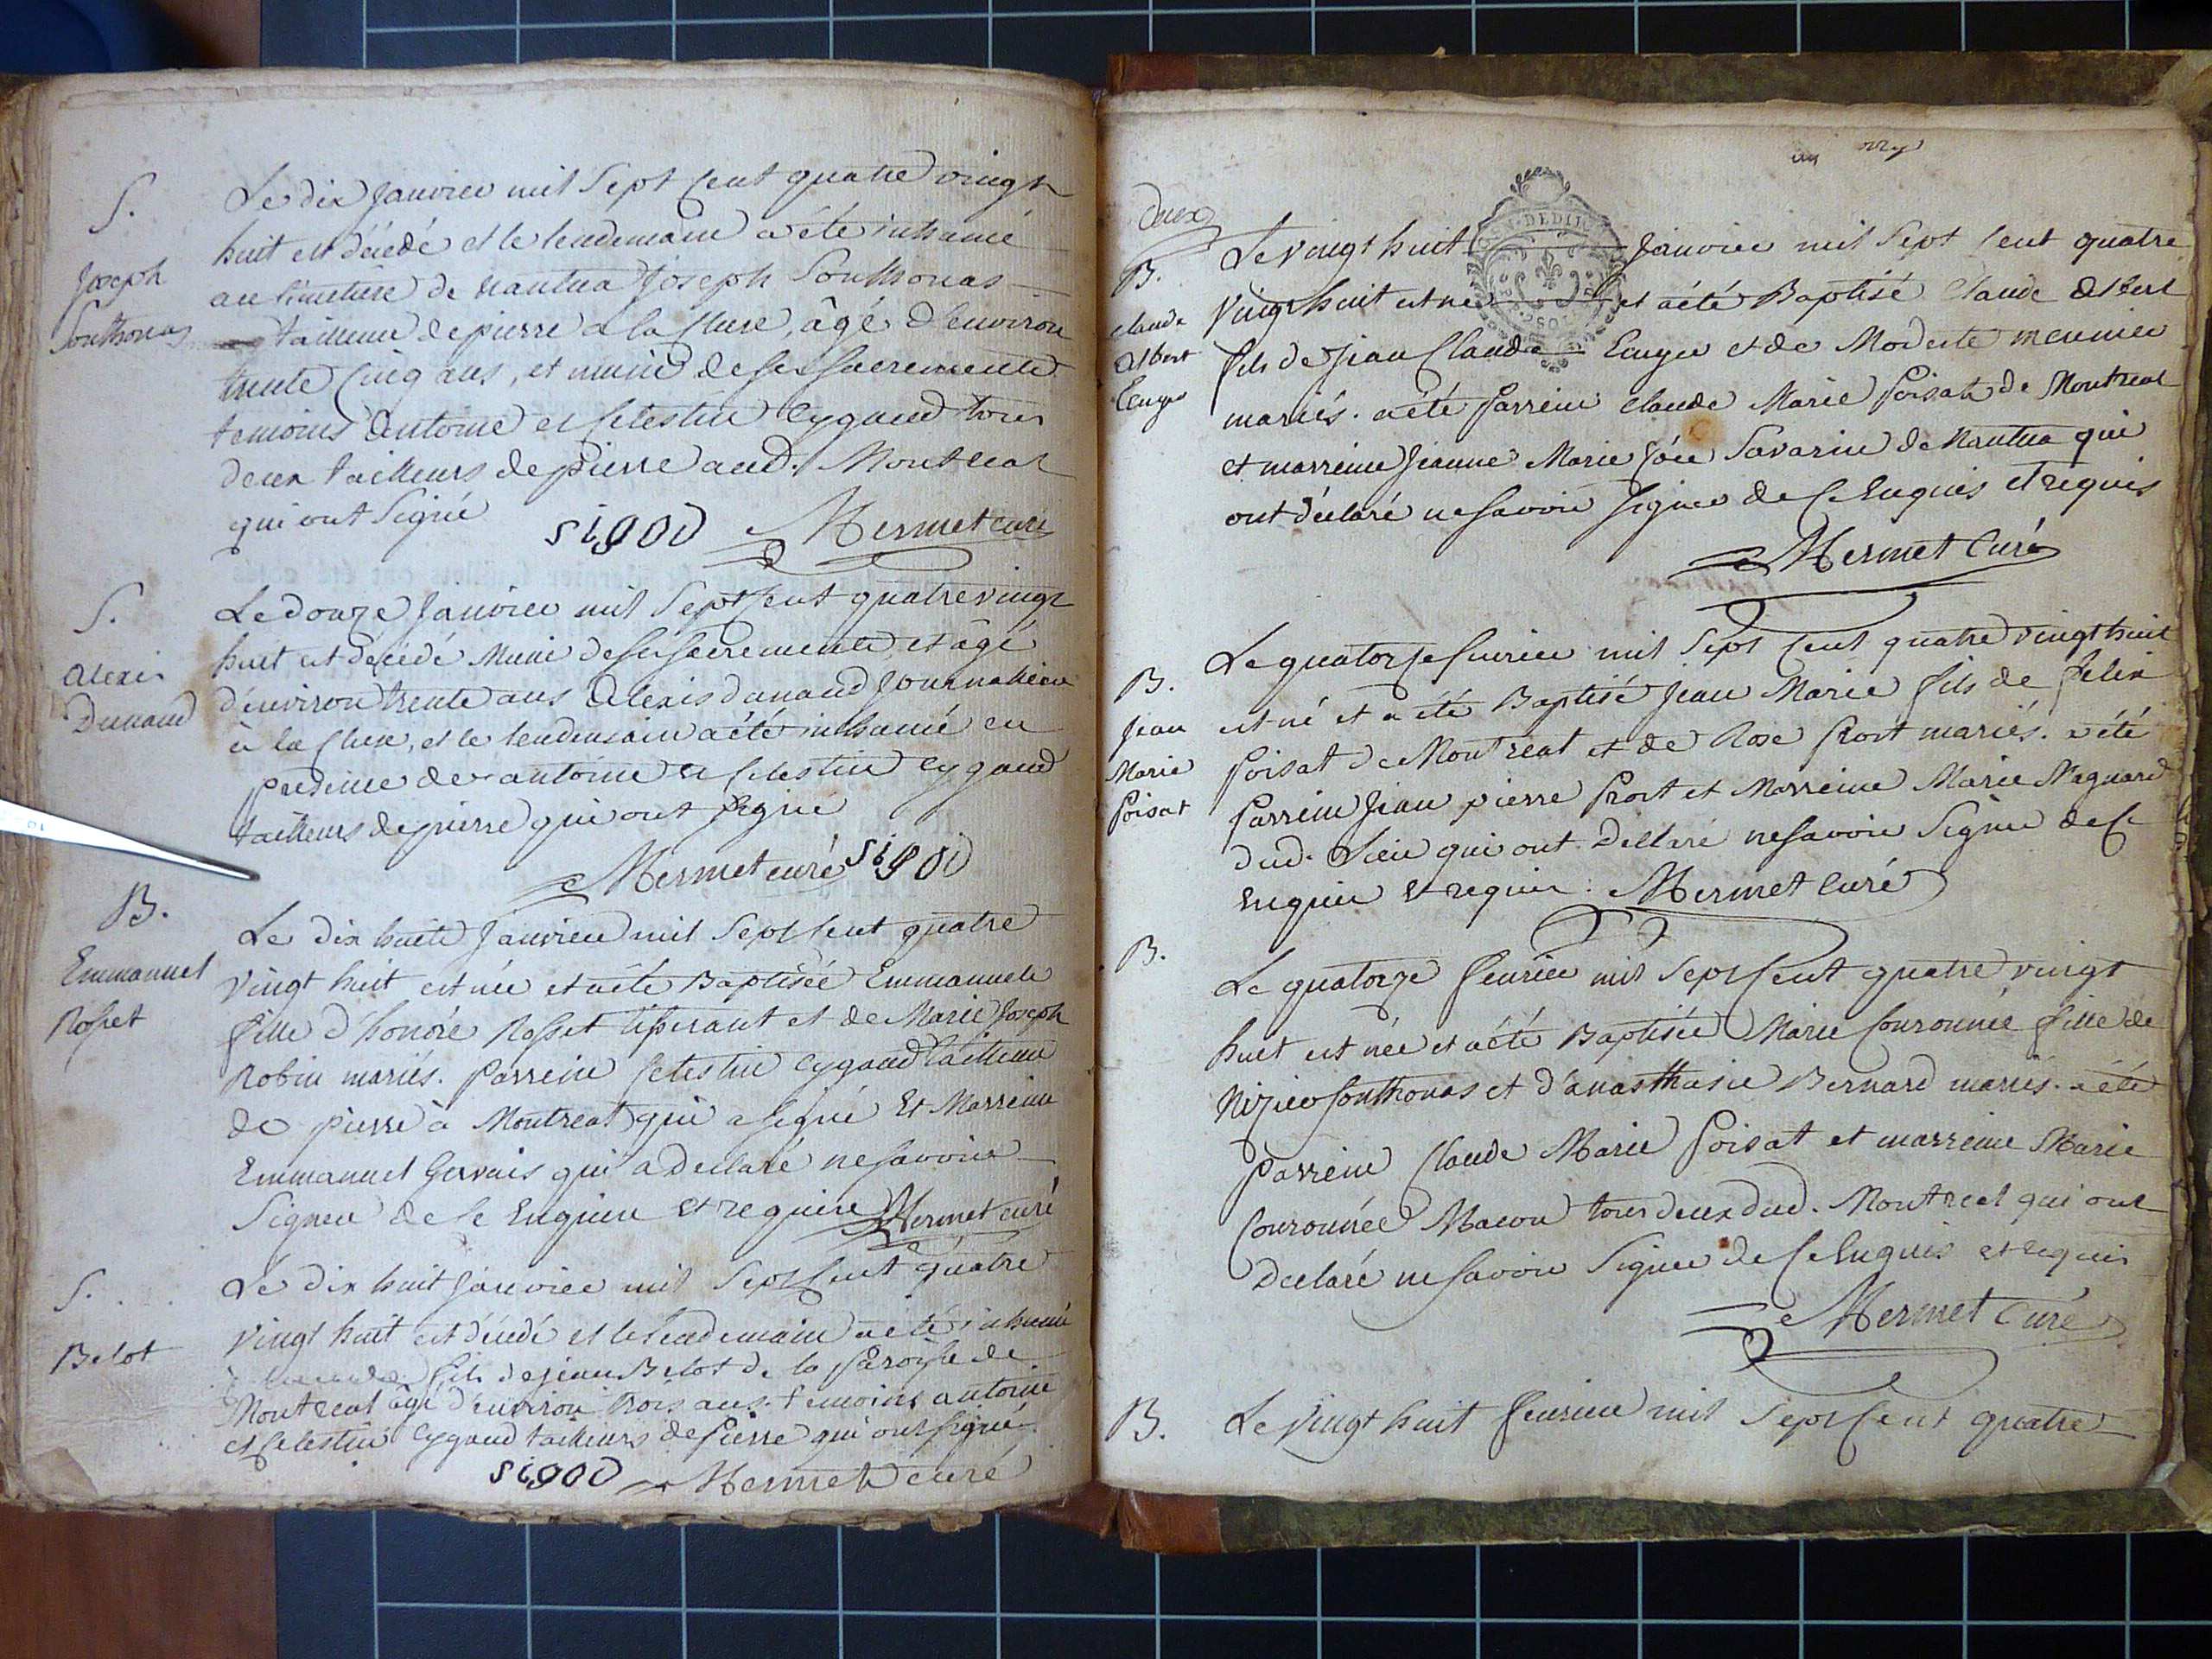 S.
Joseph
Sonthonas
Le dix janvier mil sept cent quatre vingt
huit est décédé et le lendemain a été inhumé
au cimetière de nantua Joseph Sonthonas
tailleur de pierre a la Cluse, âgé d'environ
trente cinq ans, et muni de ses sacrements
temoins antoine et Celestin Cygaud tous
deux tailleurs de pierre aud. Montreal
qui ont signé
sigod Mermet curé
S.
alexis
Dunand
Le douze janvier mil sept cent quatre vingt
huit est décédé muni de ses sacrements, et âgé
d'environ trente ans alexis dunand journalier
à la Cluse, et le lendemain a été inhumé en
presence de antoine et Celestin Cygaud
tailleurs de pierre qui ont signé
Mermet curé sigod
B.
Emmanuel
Rosset
Le dix huit janvier mil sept cent quatre
vingt huit est née et a été Baptisée Emmanuele
fille d'honoré Rosset tisserant et de Marie Joseph
Robin mariés. parrein Celestin Cygaud tailleur
de pierre à Montreal qui a signé Et Marreine
Emmanuel Gervais qui a declaré ne savoir
signer de ce Enquise et requise Mermet curé
S.
Belot
Le dix huit janvier mil sept cent quatre
vingt huit est décédé et le lendemain a été inhumé
fils de jean Belot de la paroisse de
Montreal âgé d'environ trois ans. temoins antoine
et Celestin Cygaud tailleurs de pierre qui ont signé
sigod Mermet curé
deux
B.
claude
albert
Le vingt huit janvier mil sept cent quatre
vingt huit est né et a été Baptisé Claude albert
fils de Jean Claude et de Modeste meunier
mariés. a été parrein claude Marie poisat de Montreal
et marreine Jeanne Marie Savarin de Nantua qui
ont déclaré ne savoir signer de ce Enquis et requis
Mermet Curé
B.
Jean
Marie
poisat
Le quatorze fevrier mil sept cent quatre vingt huit
est né et a été Baptisé Jean Marie fils de felix
poisat de Montreal et de Rose prost mariés. a été
parrein Jean pierre prost et Marreine Marie Magnard
dud. Lieu qui ont Declaré ne savoir signer de ce
enquis et requis. Mermet Curé
B.
Le quatorze fevrier mil sept cent quatre vingt
huit est née et a été Baptisée Marie Couronnée fille de
Nizier Sonthonas et d'anasthasie Bernard mariés. a été
parrein Claude Marie poisat et marreine Marie
Couronnée Macon tous deux dud. Montreal qui ont
declaré ne savoir signer de ce Enquis et requis
Mermet Curé
B.
Le vingt huit fevrier mil sept cent quatre